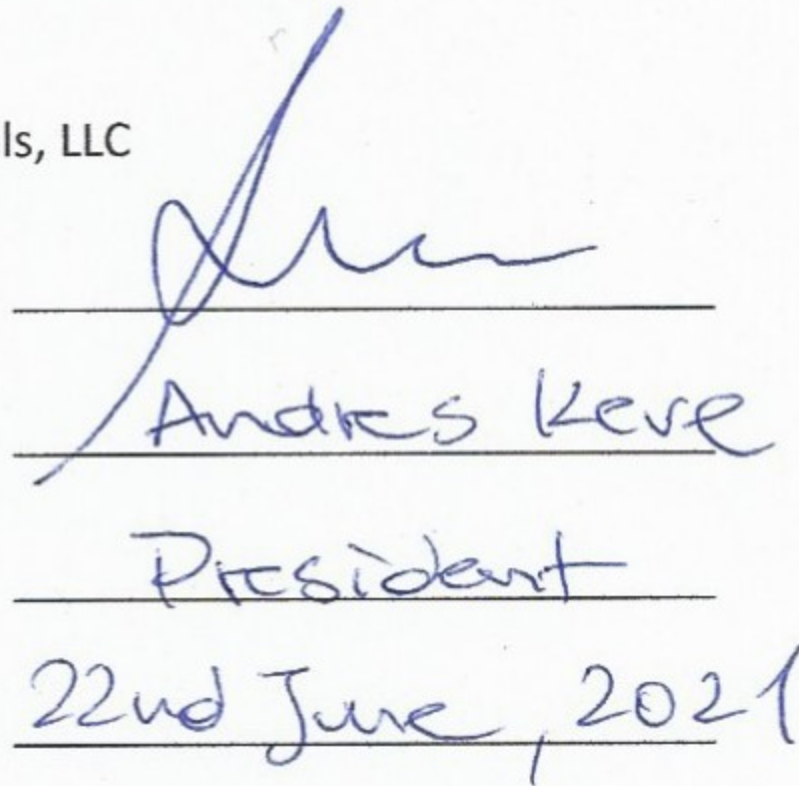 ls, LLC
Andres Keve
President
22nd June, 2021